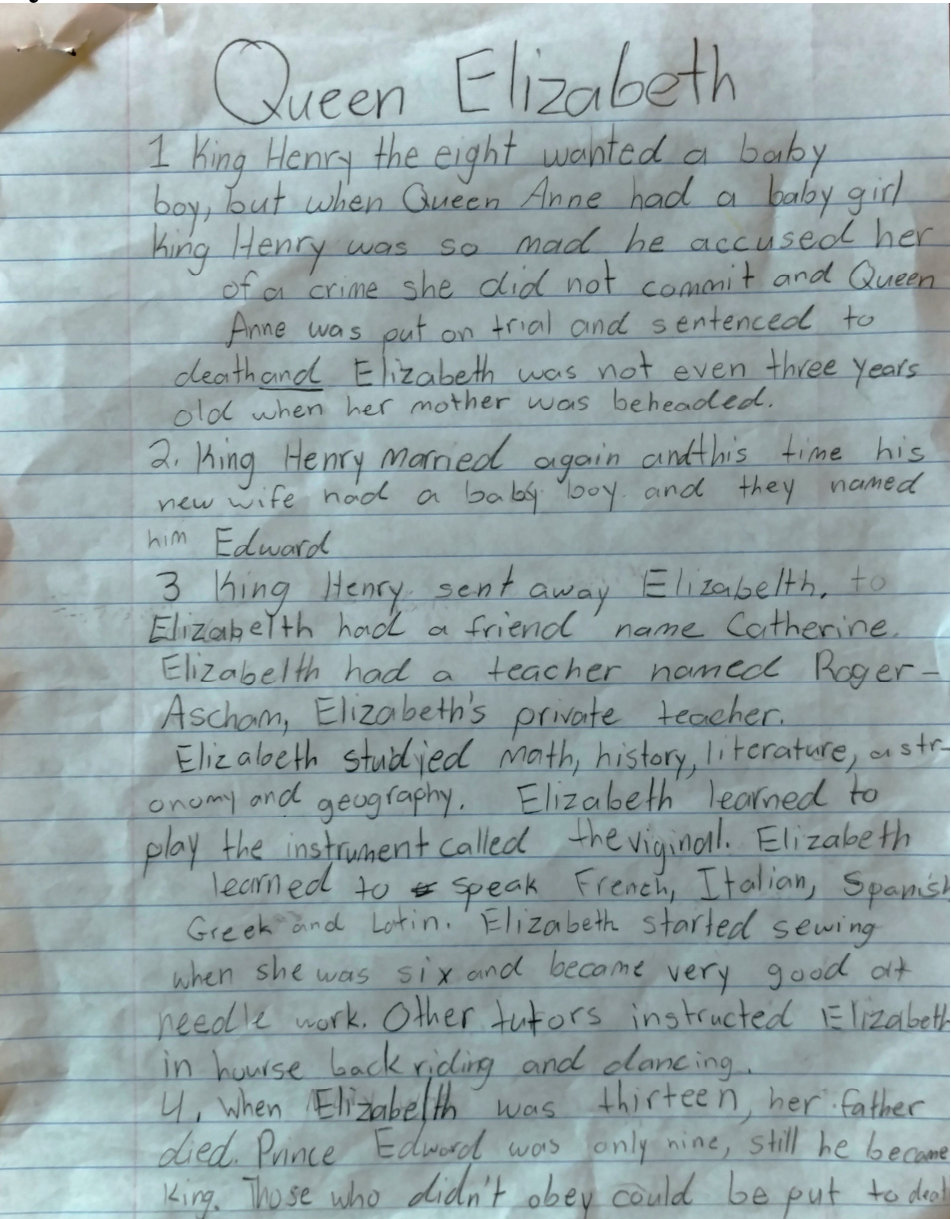 Queen Elizabeth
1 King Henry the eight wanted a baby
boy, but when Queen Anne had a baby girl
King Henry was so mad he accused her
of a crime she did not commit and Queen
Anne was put on trial and sentenced to
death and Elizabeth was not even three years
old when her mother was beheaded.
2. King Henry married again and this time his
new wife had a baby boy and they named
him Edward
3 King Henry sent away Elizabelth. to
Elizabelth had a friend name Catherine.
Elizabelth had a teacher named Roger-
Ascham, Elizabeth's private teacher.
Elizabeth studyied math, history, literature, astr-
onomy and geography. Elizabeth learned to
play the instrument called the viginall. Elizabeth
learned to speak French, Italian, Spanish
Greek and Latin. Elizabeth started sewing
when she was six and became very good at
needle work. Other tutors instructed Elizabeth
in hourse back riding and dancing.
4. When Elizabelth was thirteen, her father
died. Prince Edward was only nine, still he became
King. Those who didn't obey could be put to deat